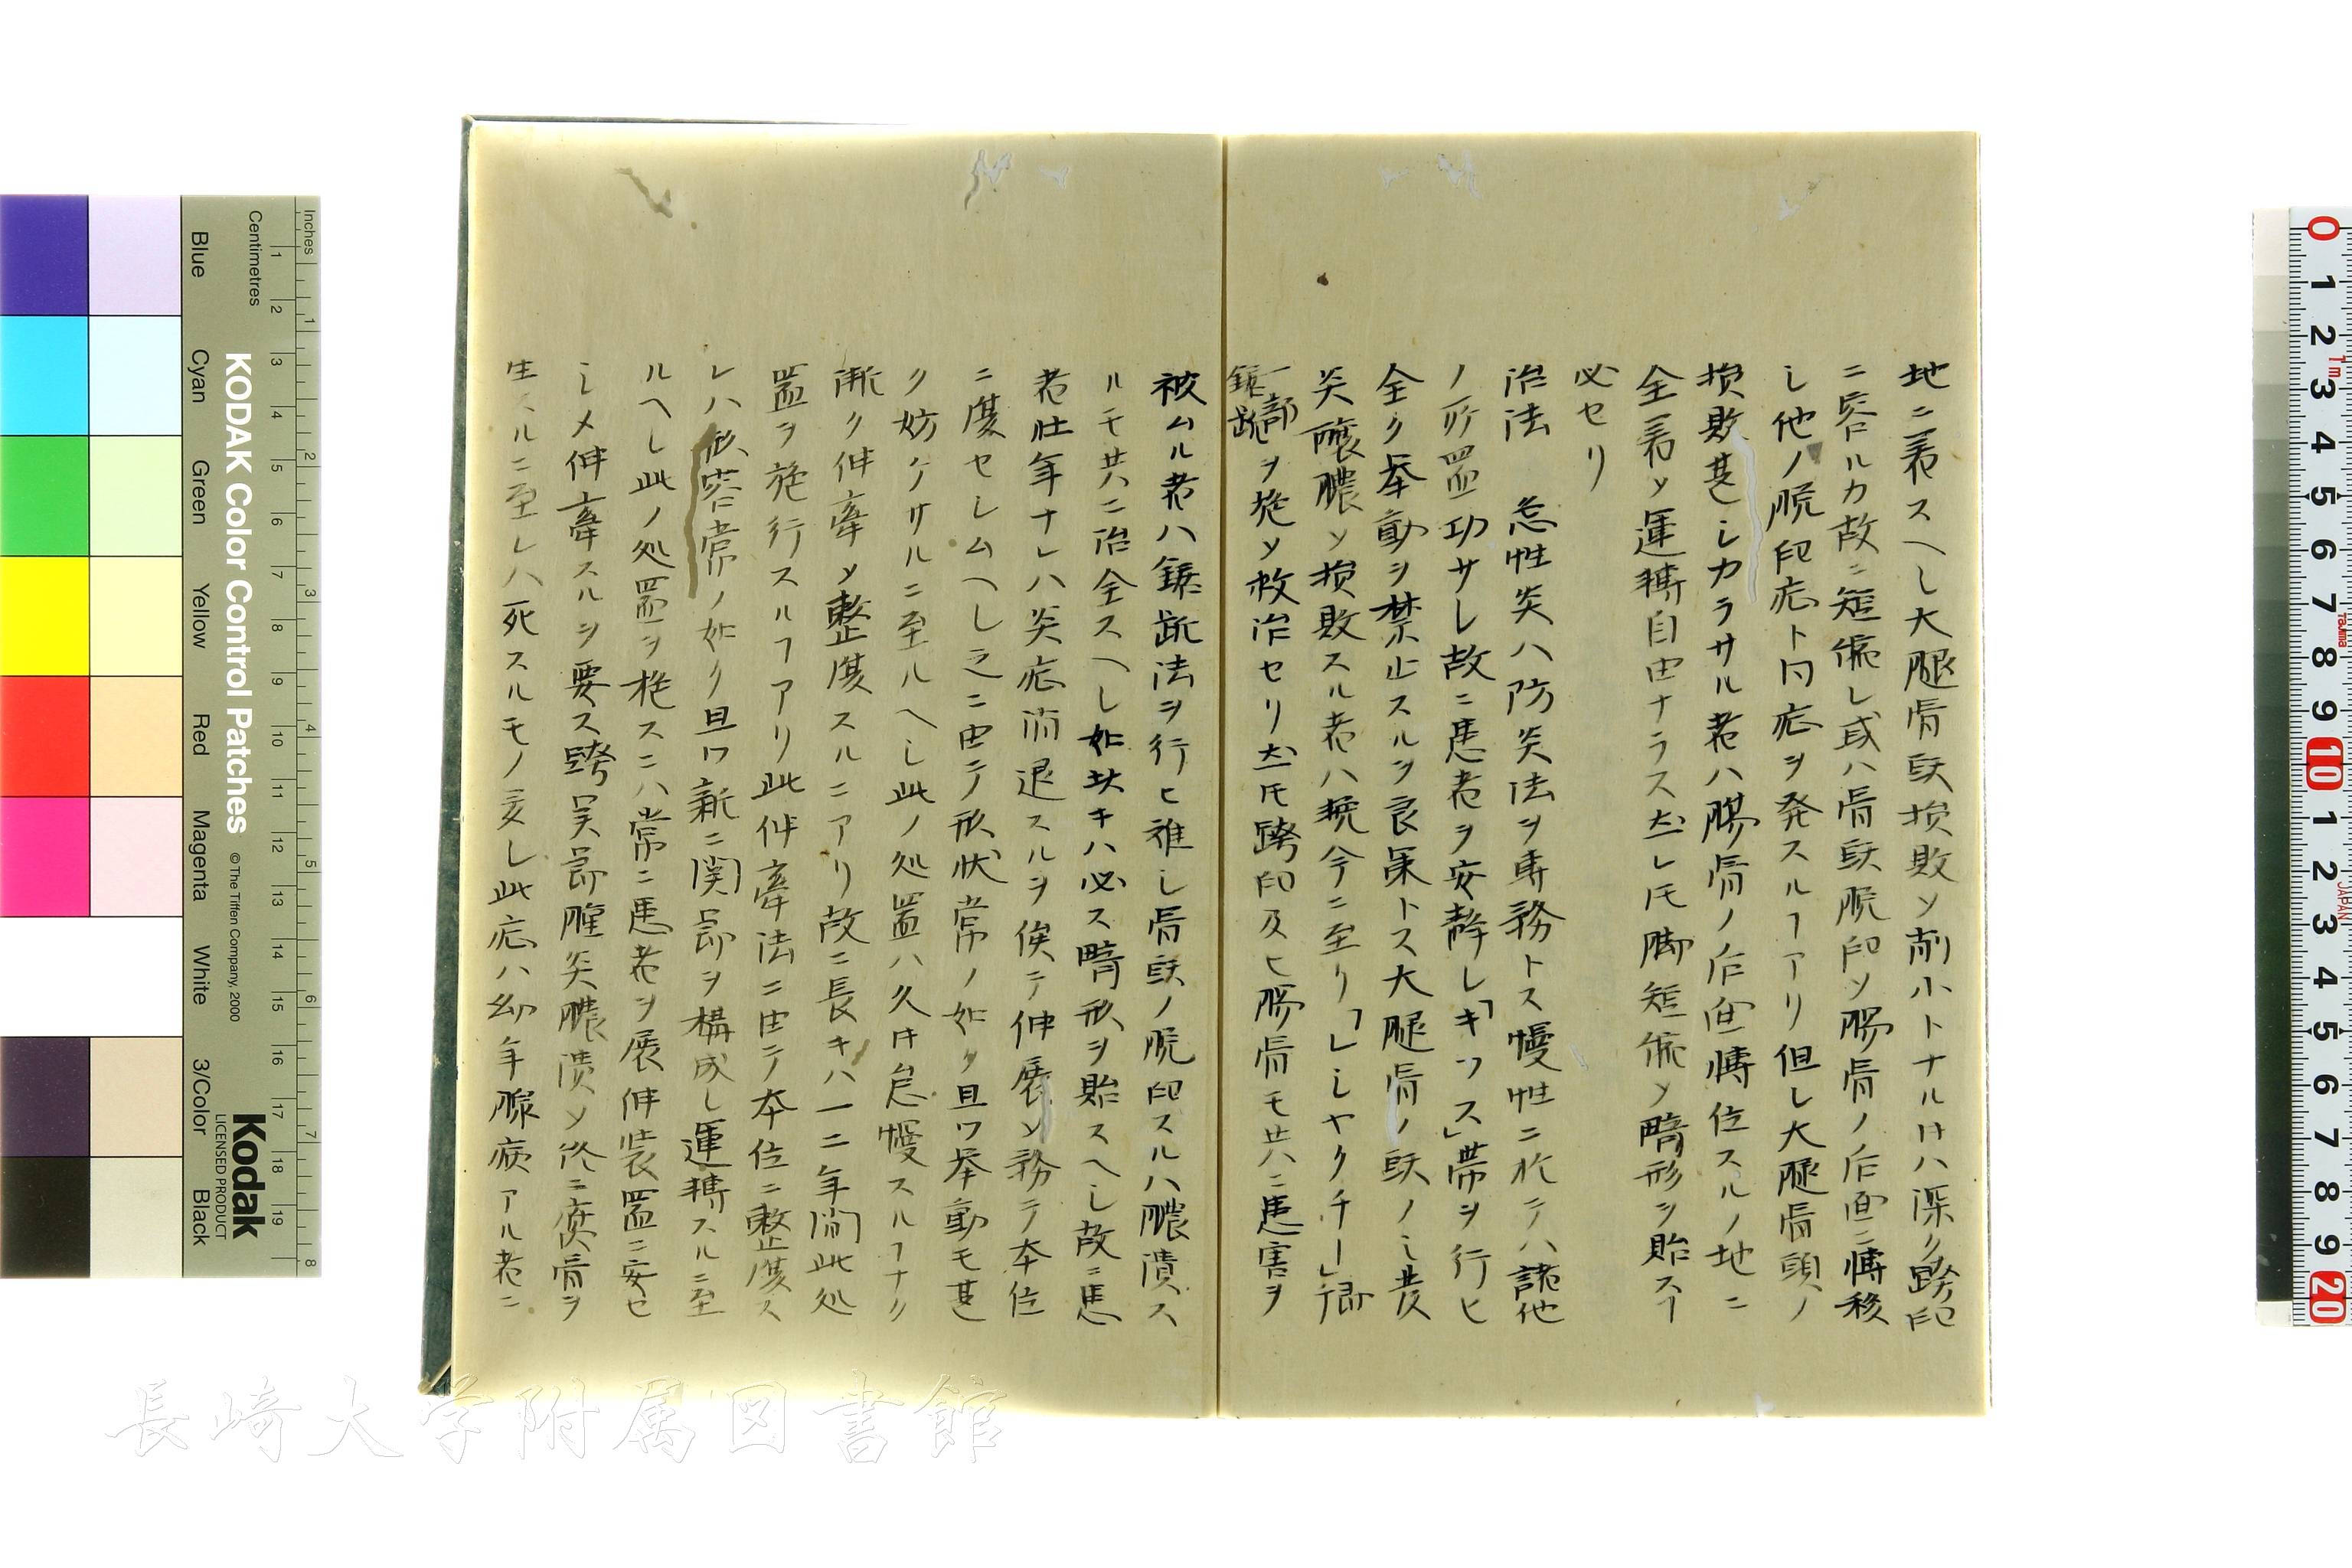 地ニ着スヘし大腿骨頭損敗ソ削小トナル时ハ深ク髎臼
ニ容ルカ故ニ短縮し或ハ骨頭脱臼ソ腸骨ノ后面ニ慱移
し他ノ脱臼症ト同症ヲ発スルヿアリ但し大腿骨頭ノ
損敗甚しカラサル者ハ腸骨ノ后面慱位スルノ地ニ
全着ソ運轉自由ナラス𪜈脚短縮ソ畸形ヲ貽スヿ
必セリ
治法 急性炎ハ防炎法ヲ専務トス慢性ニ於テハ諸他
ノ所置功サし故ニ患者ヲ安静し「キフス」帯ヲ行ヒ
全ク挙動ヲ禁止スルヲ良策トス大腿骨ノ頭ノミ炎
炎釀膿ソ損敗スル者ハ輓今ニ至リ「レしヤクチー」卽
一部鋸截ヲ施ソ救治セリ𪜈髎臼及ヒ腸骨モ共ニ患害ヲ
被ムル者ハ鋸截法ヲ行ヒ難し骨頭ノ脱臼スルハ膿潰ス
ルモ共ニ治全スヘし如此キハ必ス畸形ヲ貽スヘし故ニ患
者壮年ナレハ炎症消退スルヲ俟テ伸展ソ務テ本位
ニ復セしムヘし之ニ由テ形状常ノ如ク且ワ挙動モ甚
ク妨ケサルニ至ルヘし此ノ処置ハ久时怠慢スルヿナク
漸ク伸牽ソ整復スルニアリ故ニ長キハ一二年間此処
置ヲ施行スルヿアリ此伸牽法ニ由テ本位ニ整復ス
レハ形容常ノ如ク且ワ新ニ関節ヲ構成し運轉スルニ至
ルヘし此ノ処置ヲ施スニハ常ニ患者ヲ展伸装置ニ安セ
しメ伸牽スルヲ要ス髎臼節腫炎膿潰ソ終ニ腐骨ヲ
生スルニ至レハ死スルモノ多し此症ハ幼年腺病アル者ニ
KODAK Color Control Patches
© The Tiffen Company, 2000
Kodak
LICENSED PRODUCT
Inches
Centimetres
Blue
Cyan
Green
Yellow
Red
Magenta
White
3/Color
Black
長崎大学附属図書館